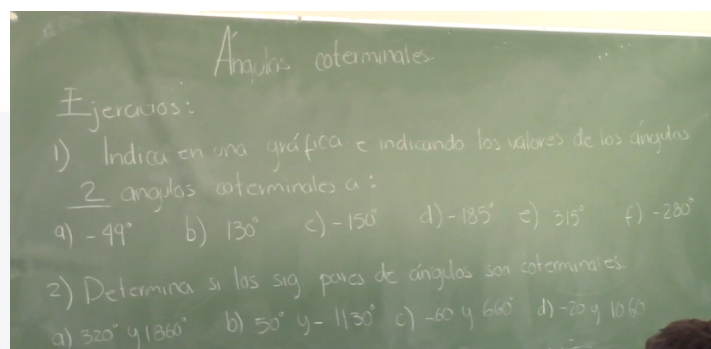 Ángulos coterminales
Ejercicios:
1) Indica en una gráfica e indicando los valores de los ángulos
2 angulos coterminales a:
a) -49° b) 130° c) -150° d) -185° e) 315° f) -280°
2) Determina si los sig pares de ángulos son coterminales.
a) 320° y 1360° b) 50° y -1130° c) -60 y 660° d) -20 y 1060